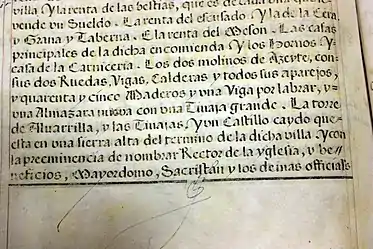 villa y la renta de las bestias, que es de cada una quese
vende un Sueldo. La renta del escusado. Y la de la Cera,
y Grana y Taberna. E la renta del Meson. Las casas
principales de la dicha encomienda Y los Hornos Y-
casa de la Carniceria. Los dos molinos de Azeyte, con-
sus dos Ruedas, Vigas, Calderas y todos sus aparejos,
y quarenta y cinco Maderos y una Viga por labrar, y=
una Almazara nueva con una Tinaja grande. La torre
de Alvarrilla, y las Tinajas. Y un Castillo caydo que-
esta en una sierra alta del termino de la dicha villa Y con
la preeminencia de nombrar Rector de la yglesia, y be-
neficios, Mayordomo, Sacristan y los demas officiales